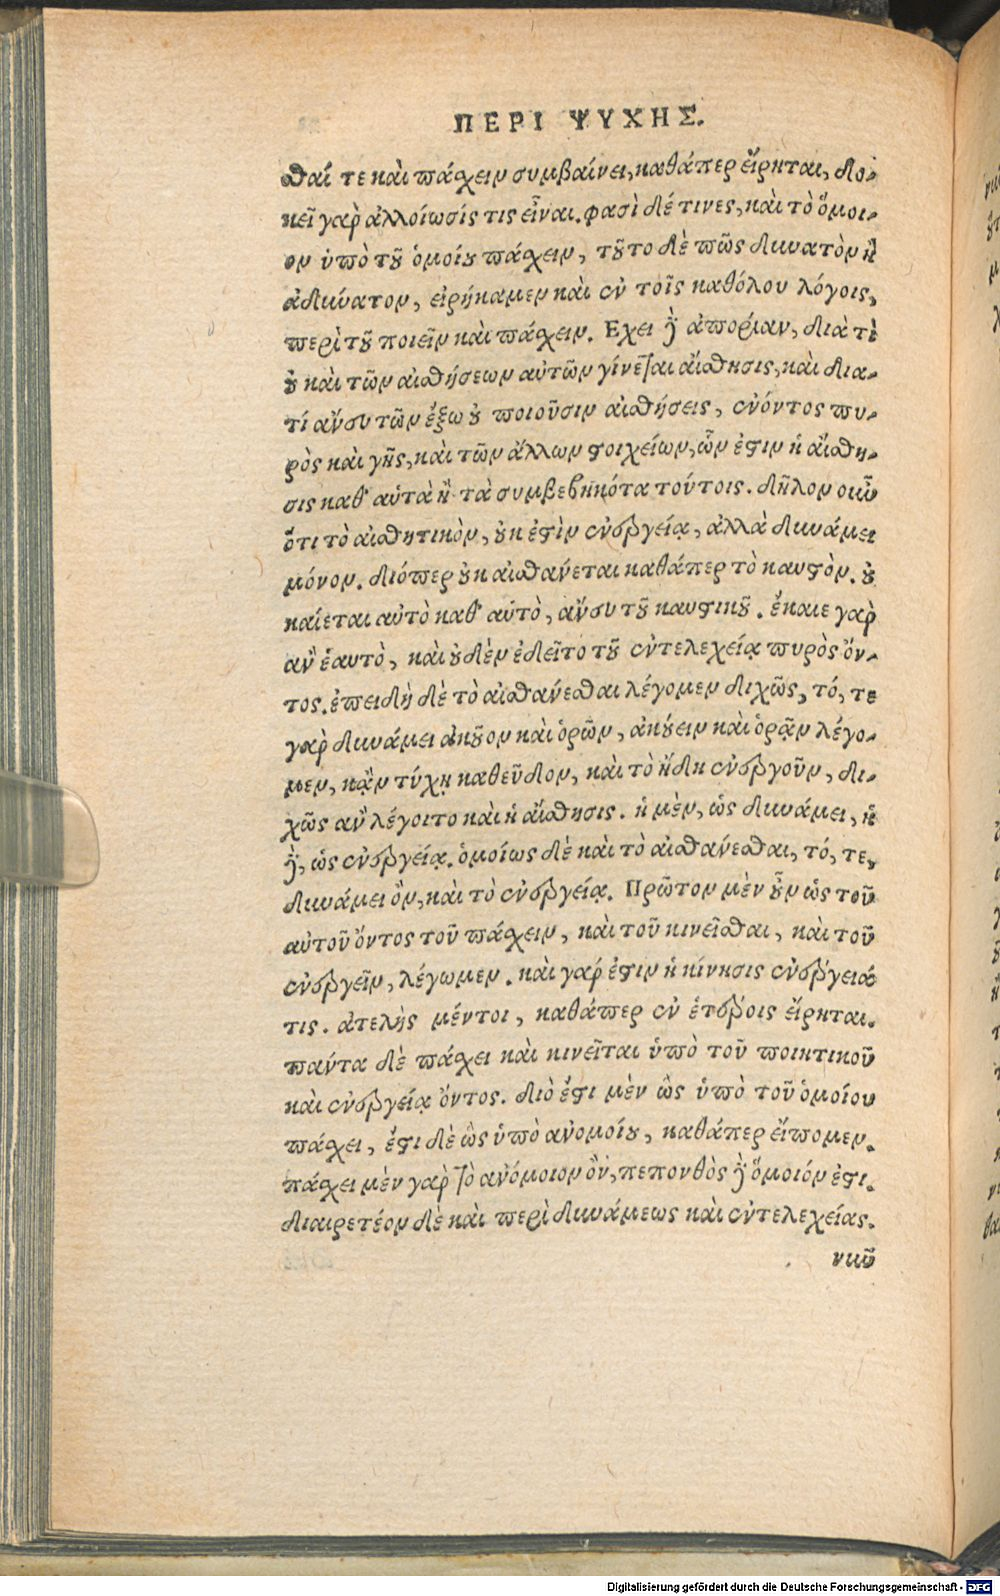 ΠΕΡΙ ΨΥΧΗΣ.
σθαί τε καὶ πάσχειν συμβαίνει, καθάπερ εἴρηται, δο-
κεῖ γὰρ ἀλλοίωσίς τις εἶναι. φασὶ δέ τινες, καὶ τὸ ὅμοι-
ον ὑπὸ τοῦ ὁμοίου πάσχειν, τοῦτο δὲ πῶς δυνατὸν ἢ
ἀδύνατον, εἰρήκαμεν καὶ ἐν τοῖς καθόλου λόγοις,
περὶ τοῦ ποιεῖν καὶ πάσχειν. Εχει δὲ ἀπορίαν, διὰ τὶ
οὐ καὶ τῶν αἰσθήσεων αὐτῶν γίνεται αἴσθησις, καὶ δια-
τί ἄνευ τῶν ἔξω οὐ ποιοῦσιν αἰσθήσεις, ἐνόντος πυ-
ρὸς καὶ γῆς, καὶ τῶν ἄλλων στοιχείων, ὧν ἐστιν ἡ αἴσθη-
σις καθ' αὑτὰ ἢ τὰ συμβεβηκότα τούτοις. δῆλον οὖν
ὅτι τὸ αἰσθητικὸν, οὐκ ἐστὶν ἐνεργείᾳ, ἀλλὰ δυνάμει
μόνον. διόπερ οὐκ αἰσθάνεται καθάπερ τὸ καυστὸν. οὐ
καίεται αὐτὸ καθ' αὑτὸ, ἄνευ τοῦ καυστικοῦ. ἔκαιε γὰρ
ἂν ἑαυτὸ, καὶ οὐδὲν ἐδεῖτο τοῦ ἐντελεχείᾳ πυρὸς ὄν-
τος. ἐπειδὴ δὲ τὸ αἰσθάνεσθαι λέγομεν διχῶς, τό, τε
γὰρ δυνάμει ἀκοῦον καὶ ὁρῶν, ἀκούειν καὶ ὁρᾷν λέγο-
μεν, κᾂν τύχῃ καθεῦδον, καὶ τὸ ἤδη ἐνεργοῦν, δι-
χῶς ἂν λέγοιτο καὶ ἡ αἴσθησις. ἡ μὲν, ὡς δυνάμει, ἡ
δὲ, ὡς ἐνεργείᾳ. ὁμοίως δὲ καὶ τὸ αἰσθάνεσθαι, τό, τε,
δυνάμει ὂν, καὶ τὸ ἐνεργείᾳ. Πρῶτον μὲν οὖν ὡς τοῦ
αὐτοῦ ὄντος τοῦ πάσχειν, καὶ τοῦ κινεῖσθαι, καὶ τοῦ
ἐνεργεῖν, λέγωμεν. καὶ γάρ ἐστιν ἡ κίνησις ἐνέργειά
τις. ἀτελὴς μέντοι, καθάπερ ἐν ἑτέροις εἴρηται.
πάντα δὲ πάσχει καὶ κινεῖται ὑπὸ τοῦ ποιητικοῦ
καὶ ἐνεργείᾳ ὄντος. διὸ ἔστι μὲν ὡς ὑπὸ τοῦ ὁμοίου
πάσχει, ἔστι δὲ ὡς ὑπὸ ἀνομοίου, καθάπερ εἴπομεν.
πάσχει μὲν γὰρ τὸ ἀνόμοιον ὂν, πεπονθὸς δὲ ὅμοιόν ἐστι.
διαιρετέον δὲ καὶ περὶ δυνάμεως καὶ ἐντελεχείας.
νῦν
Digitalisierung gefördert durch die Deutsche Forschungsgemeinschaft - DFG